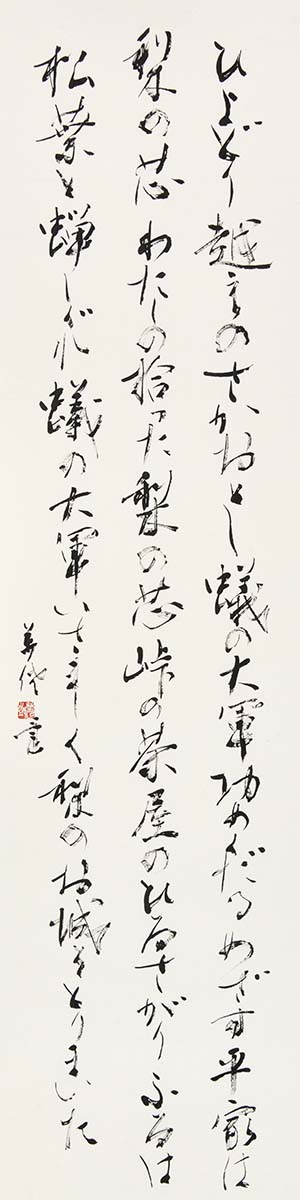 ひよどり越えのさかおとし蟻の大軍功めくだるめざす平家は
梨の芯わたしの拾った梨の芯峠の茶屋のひるさがりふるは
松葉と蝉しぐれ蟻の大軍いさましく梨のお城をとりまいた
書